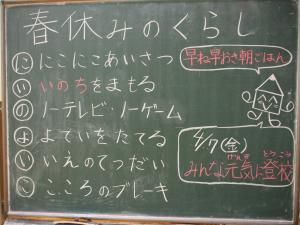 春休みのくらし
に にこにこあいさつ
い いのちをまもる
の ノーテレビ・ノーゲーム
よ よていをたてる
い いえのてつだい
こ こころのブレーキ
早ね早おき朝ごはん
4/7(金)
みんな元気に登校
げんき とうこう